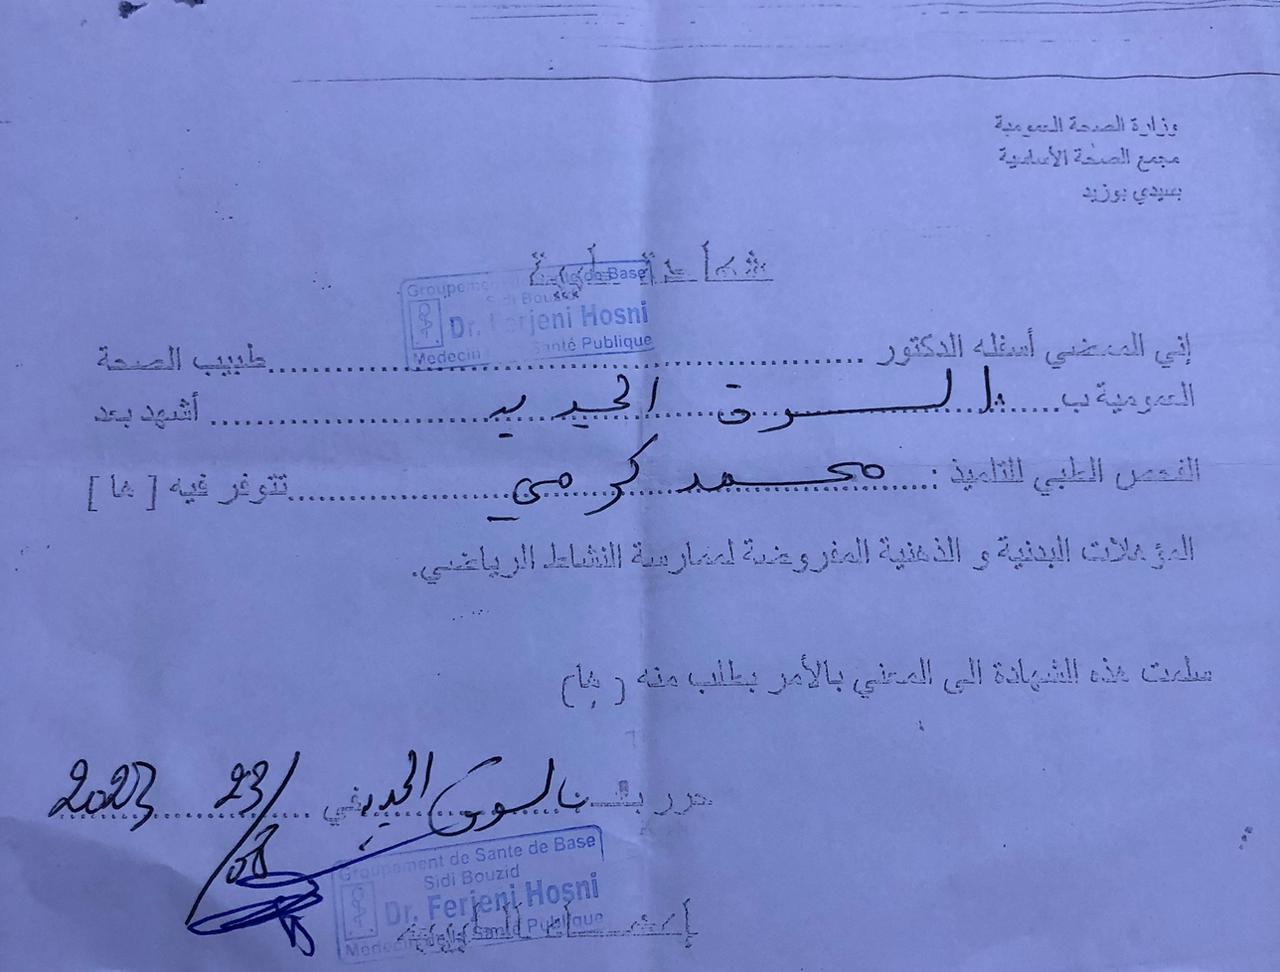 وزارة الصحة العمومية
مجمع الصحة الأساسية
بسيدي بوزيد
شهادة طبية
Groupement de Sante de Base
Sidi Bouzid
Dr. Ferjeni Hosni
Medecin de la Santé Publique
إني الممضي أسفله الدكتور ............ طبيب الصحة
العمومية ب.... السوق الجديد ............ أشهد بعد
الفحص الطبي للتلميذ : محمد كرمي ............ تتوفر فيه [ ها ]
المؤهلات البدنية و الذهنية المفروضة لممارسة النشاط الرياضي.
سلمت هذه الشهادة الى المعني بالأمر بطلب منه ( ها)
حرر بـ السوق الجديد في 23/ 2023
Groupement de Sante de Base
Sidi Bouzid
Dr. Ferjeni Hosni
Medecin de la Santé Publique